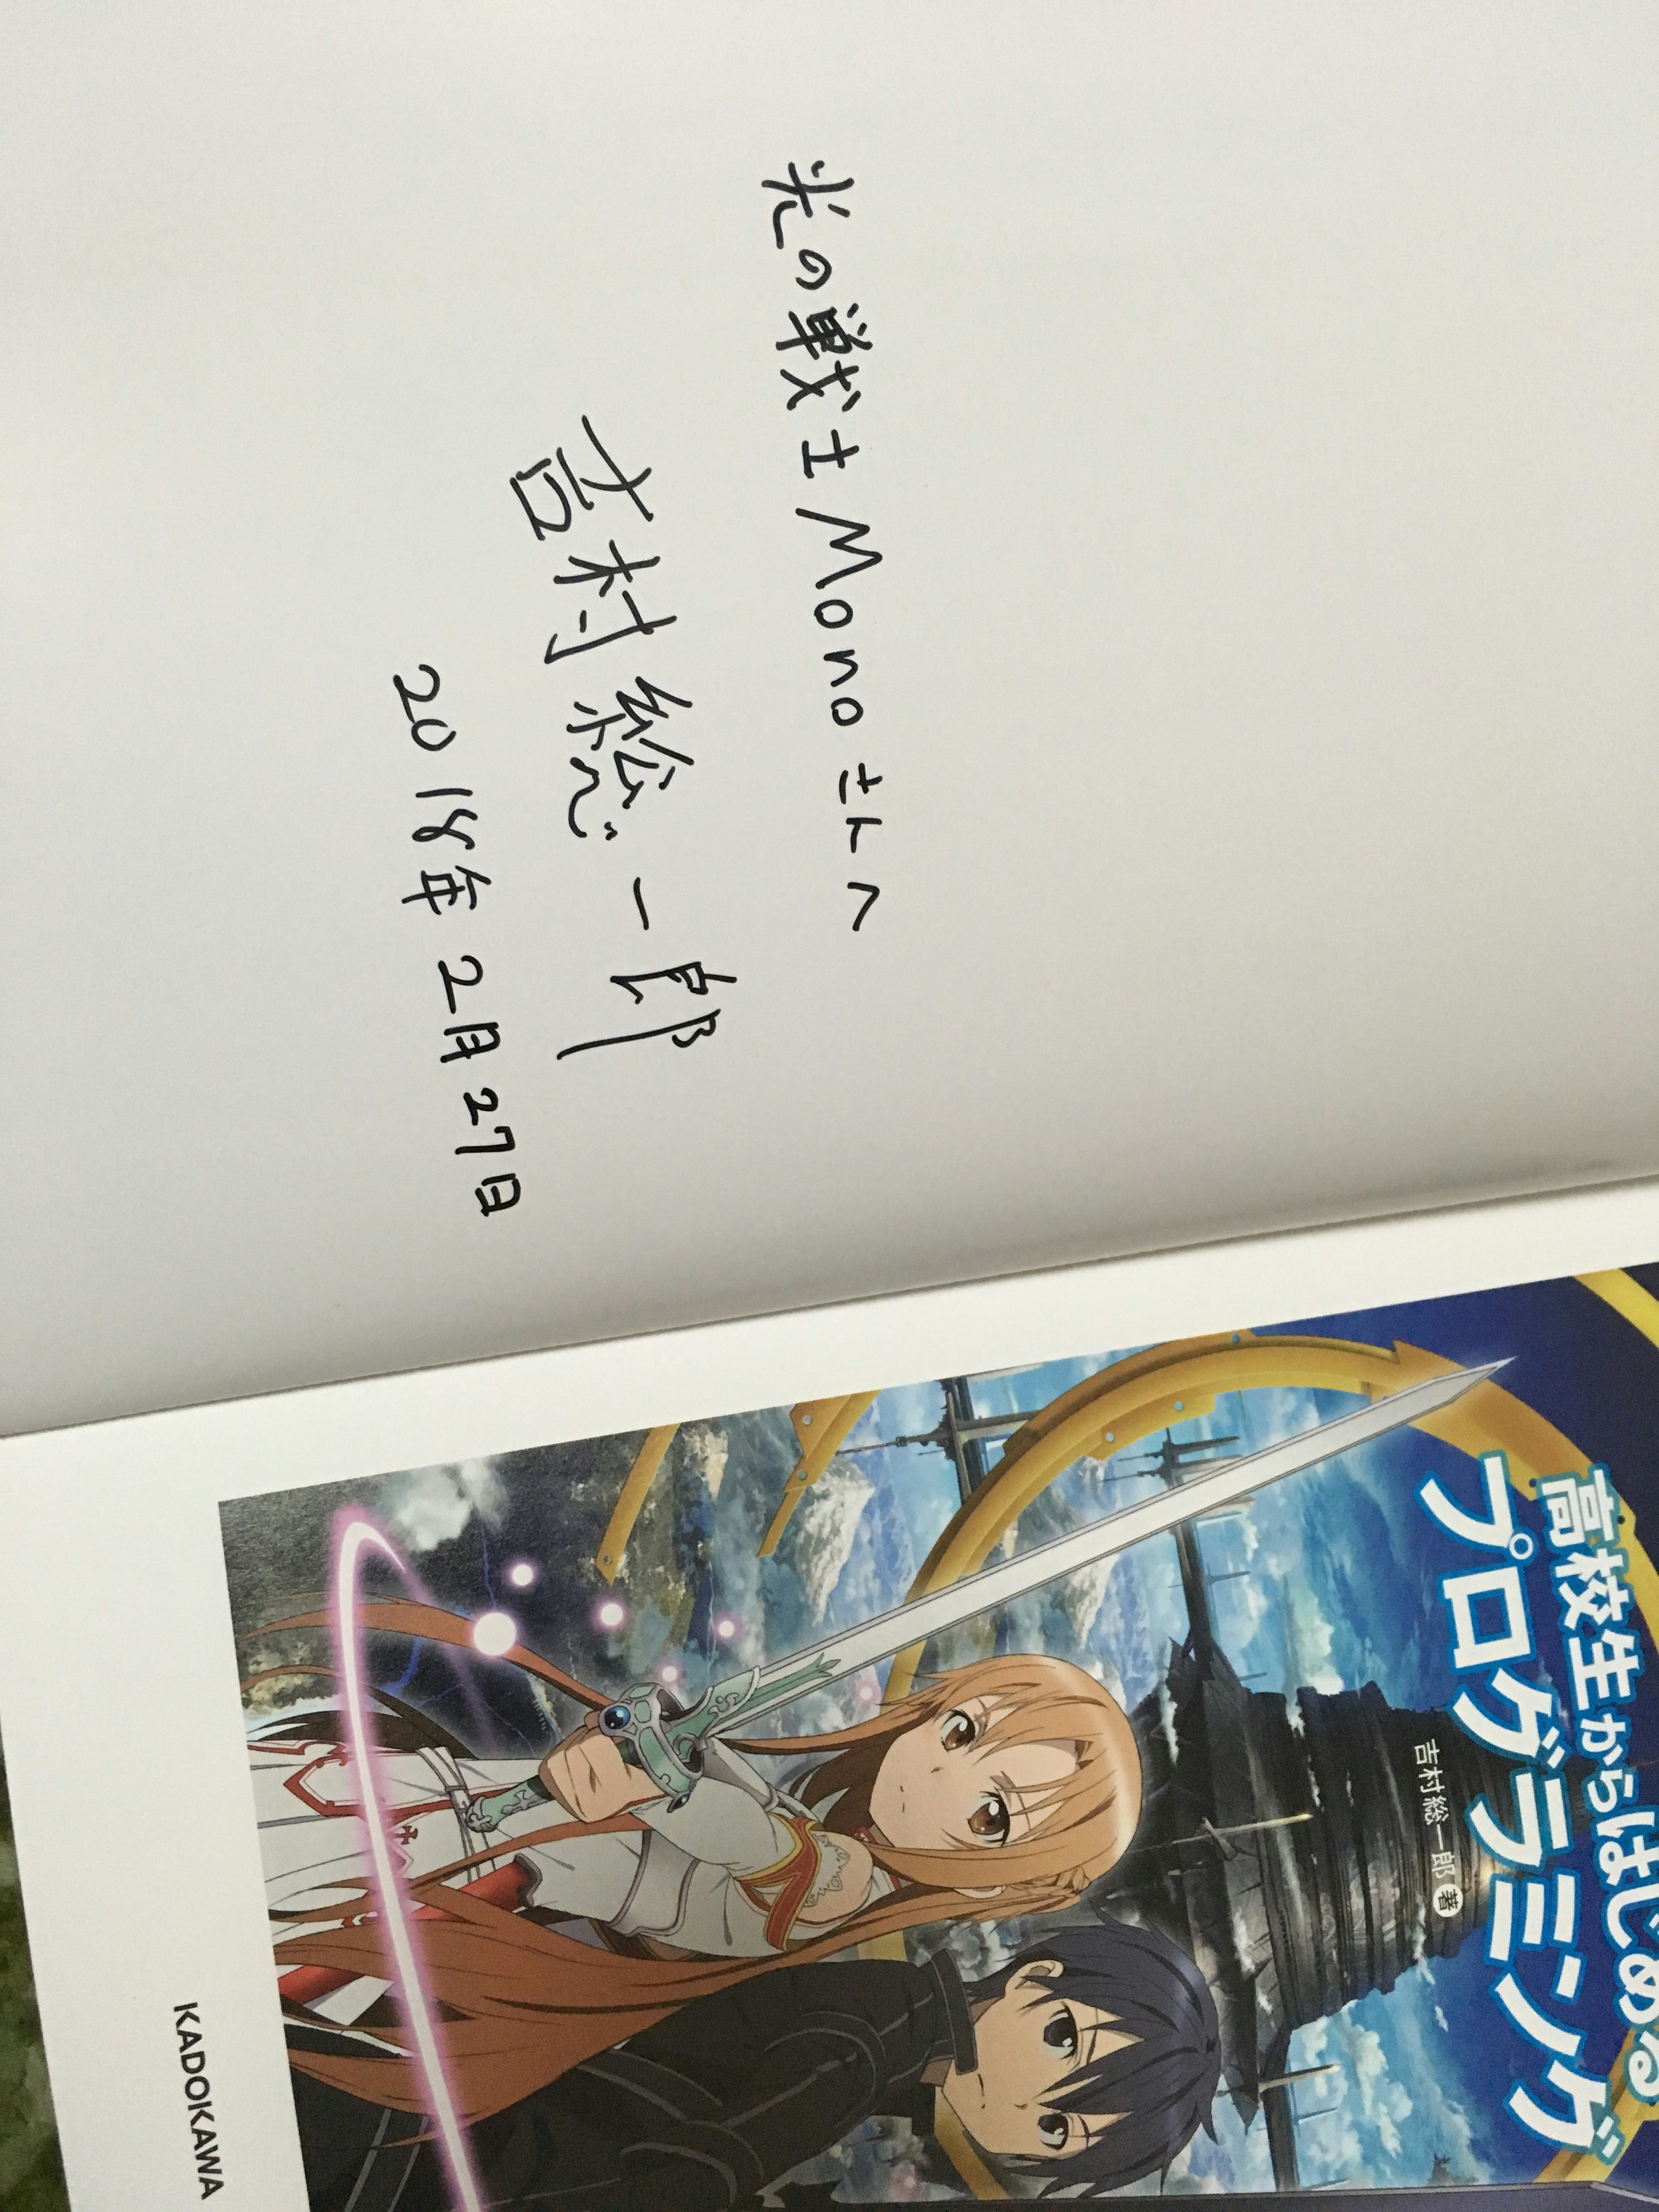 光の戦士Monoさんへ
吉村総一郎
2018年2月27日
高校生からはじめる
プログラミング
吉村総一郎 著
KADOKAWA